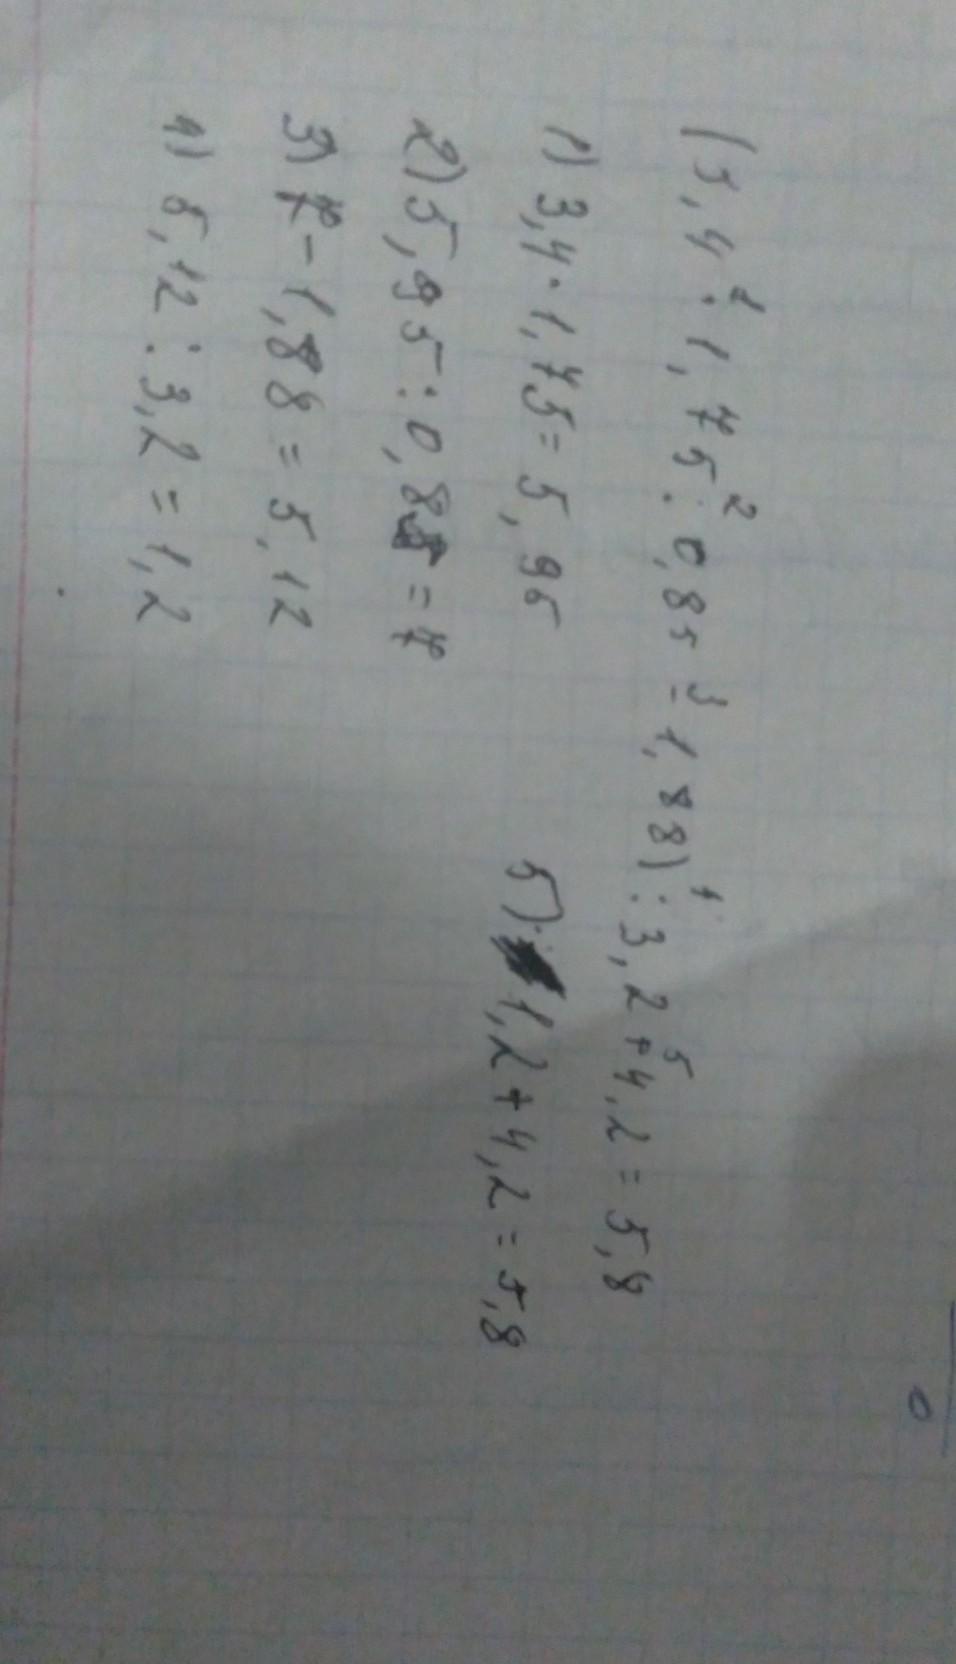 (3,4 · 1,75 : 0,85 - 1,88) : 3,2 + 4,2 = 5,8
1) 3,4 · 1,75 = 5,95
2) 5,95 : 0,85 = 7
3) 7 - 1,88 = 5,12
4) 5,12 : 3,2 = 1,2
5) 1,2 + 4,2 = 5,8
0